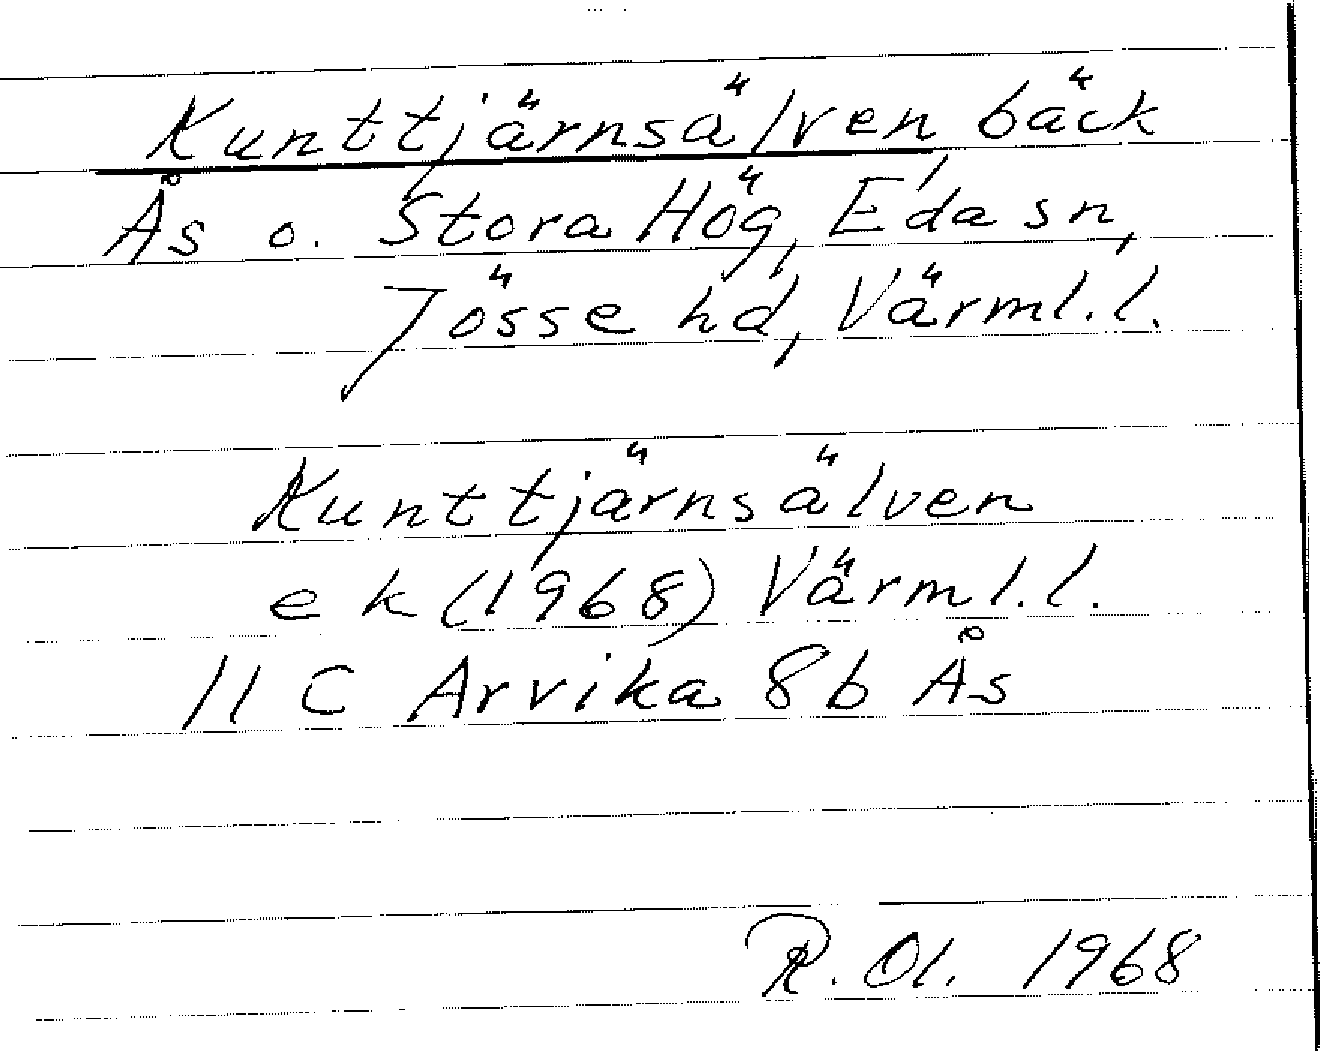 Kunttjärnsälven bäck
Ås o. Stora Hög, Eda sn,
Jösse hd, Värml.l.
Kunttjärnsälven
ek (1968) Värml.l.
11 C Arvika 8b Ås
R. Ol. 1968